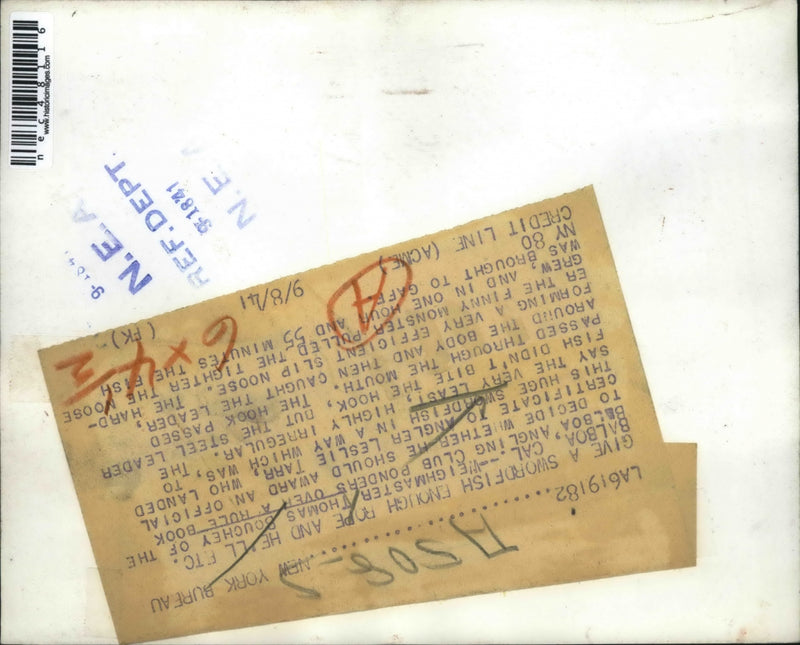 nec48116
www.historicimages.com
N.E.A
9-1841
N.E.A.
REF. DEPT.
9-1841
N.E.A
A508-2
LA619182 ........................ NEW YORK BUREAU
GIVE A SWORDFISH ENOUGH ROPE AND HE'LL ETC.
BALBOA, CAL.--WEIGHMASTER THOMAS BOUCHEY OF THE
BALBOA ANGLING CLUB PONDERS OVER A RULE BOOK
TO DECIDE WHETHER HE SHOULD AWARD AN OFFICIAL
CERTIFICATE TO ANGLER LESLIE TARR, WHO LANDED
THIS HUGE SWORDFISH, IN A WAY WHICH WAS, TO
SAY THE VERY LEAST, HIGHLY IRREGULAR. THE
FISH DIDN'T BITE THE HOOK, BUT THE STEEL LEADER
PASSED THROUGH THE MOUTH. THE HOOK PASSED
AROUND THE BODY AND THEN CAUGHT THE LEADER,
FORMING A VERY EFFICIENT SLIP NOOSE. THE HARD-
ER THE FINNY MONSTER PULLED THE TIGHTER THE NOOSE
GREW, AND IN ONE HOUR AND 55 MINUTES THE FISH
WAS BROUGHT TO GAFF.
NY 80
CREDIT LINE (ACME) 9/8/41 (FK)-
A
6 x 4 1/2